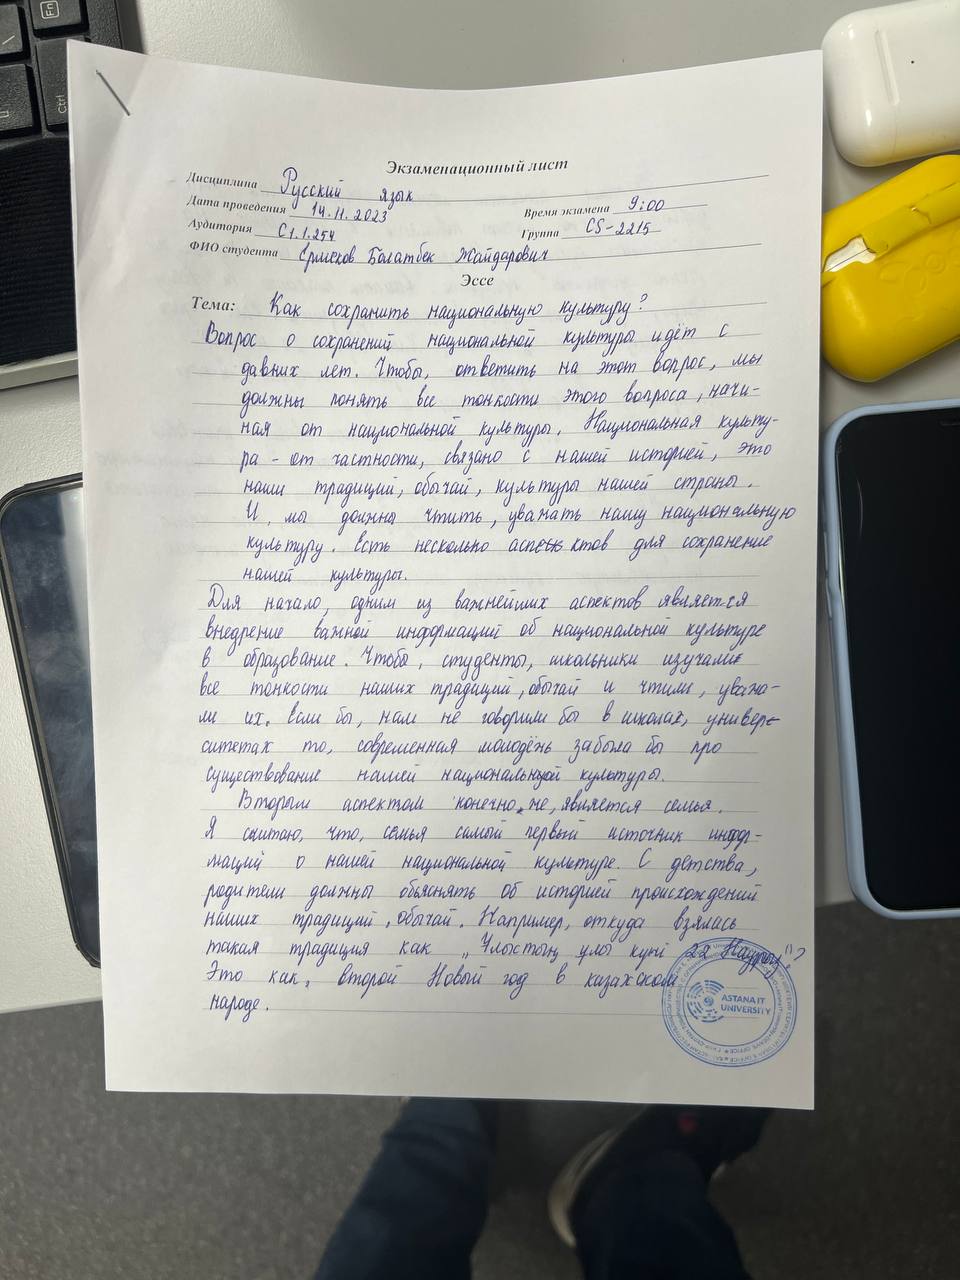 Fn
Ctrl
Экзаменационный лист
Дисциплина Русский язык
Дата проведения 14.11.2023 Время экзамена 9:00
Аудитория C1.1.254 Группа CS-2215
ФИО студента Ермеков Болатбек Жайдарович
Эссе
Тема: Как сохранить национальную культуру?
Вопрос о сохранений национальной культуры идёт с
давних лет. Чтобы, ответить на этот вопрос, мы
должны понять все тонкости этого вопроса, начи-
ная от национальной культуры. Национальная культу-
ра - от частности, связано с нашей историей, это
наши традиций, обычай, культуры нашей страны.
И, мы должны чтить, уважать нашу национальную
культуру. Есть несколько аспектов для сохранение
нашей культуры.
Для начало, одним из важнейших аспектов является
внедрение важной информаций об национальной культуре
в образование. Чтобы, студенты, школьники изучали
все тонкости наших традиций, обычай и чтили, уважа-
ли их. Если бы, нам не говорили бы в школах, универ-
ситетах то, современная молодёнь забыла бы про
существование нашей национальной культуры.
Вторым аспектом конечно же, является семья.
Я считаю, что, семья самый первый источник инфор-
маций о нашей национальной культуре. С детства,
родители должны обьяснять об историей происхождений
наших традиций, обычай. Например, откуда взялась
такая традиция как „Ұлыстың ұлы күні 22 Наурыз"?
Это как, второй Новый год в казахском
народе.
ASTANA IT
UNIVERSITY